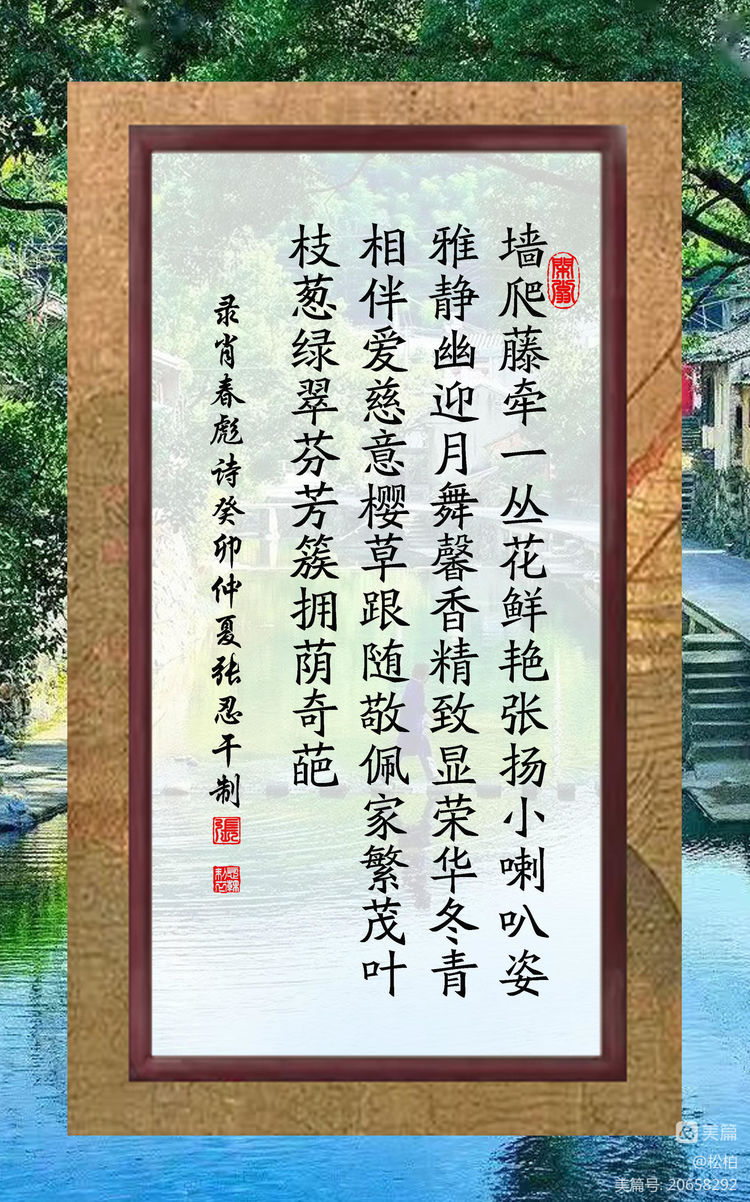 墙爬藤牵一丛花鲜艳张扬小喇叭姿
雅静幽迎月舞馨香精致显荣华冬青
相伴爱慈意樱草跟随敬佩家繁茂叶
枝葱绿翠芬芳簇拥荫奇葩
录肖春彪诗癸卯仲夏张忍干制
張
美篇
@松柏
美篇号: 20658292